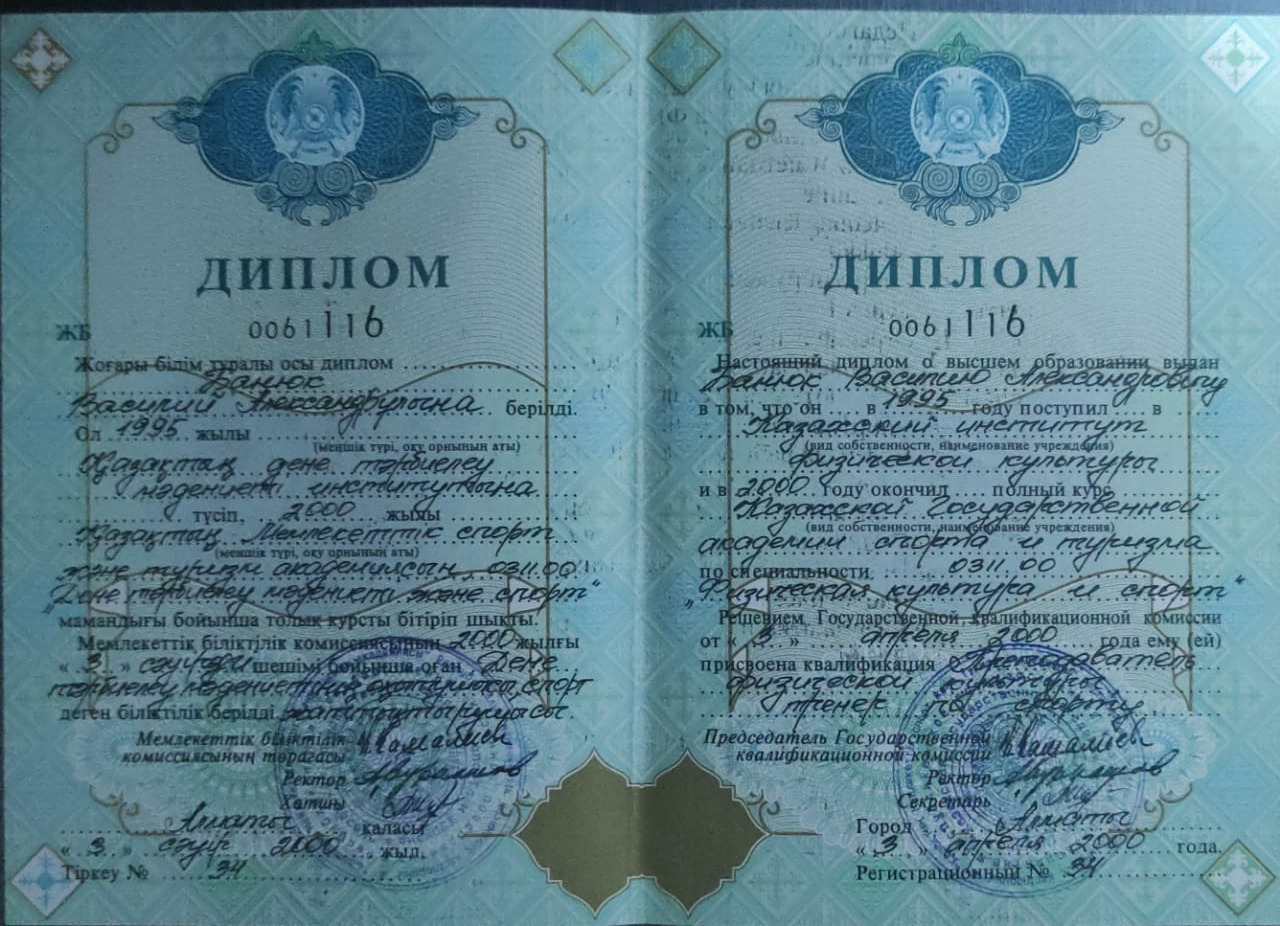 ДИПЛОМ
ЖБ 0061116
Жоғары білім туралы осы диплом
Банюк
Василий Александрұлына берілді.
Ол 1995 жылы
(меншік түрі, оқу орнының аты)
Қазақтың дене тәрбиелеу
мәдениеті институтына
түсіп, 2000 жылы
Қазақтың Мемлекеттік спорт
(меншік түрі, оқу орнының аты)
және туризм академиясын 0311.00
"Дене тәрбиелеу мәдениеті және спорт"
мамандығы бойынша толық курсты бітіріп шықты.
Мемлекеттік біліктілік комиссиясының 2000 жылғы
« 3 » сәуірдегі шешімі бойынша оған Дене
тәрбиелеу мәдениетінің оқытушысы, спорт
деген біліктілік берілді жаттықтырушысы.
Мемлекеттік біліктілік
комиссиясының төрағасы
Ректор
Хатшы
Алматы қаласы
« 3 » сәуір 2000 жыл.
Тіркеу № 34
ДИПЛОМ
ЖБ 0061116
Настоящий диплом о высшем образовании выдан
Банюк Василию Александровичу
в том, что он в 1995 году поступил в
Казахский институт
(вид собственности, наименование учреждения)
физической культуры
и в 2000 году окончил полный курс
Казахской Государственной
(вид собственности, наименование учреждения)
академии спорта и туризма
по специальности 0311.00
"Физическая культура и спорт"
Решением Государственной квалификационной комиссии
от « 3 » апреля 2000 года ему (ей)
присвоена квалификация Преподаватель
физической культуры
тренер по спорту
Председатель Государственной
квалификационной комиссии
Ректор
Секретарь
Город Алматы
« 3 » апреля 2000 года.
Регистрационный № 34